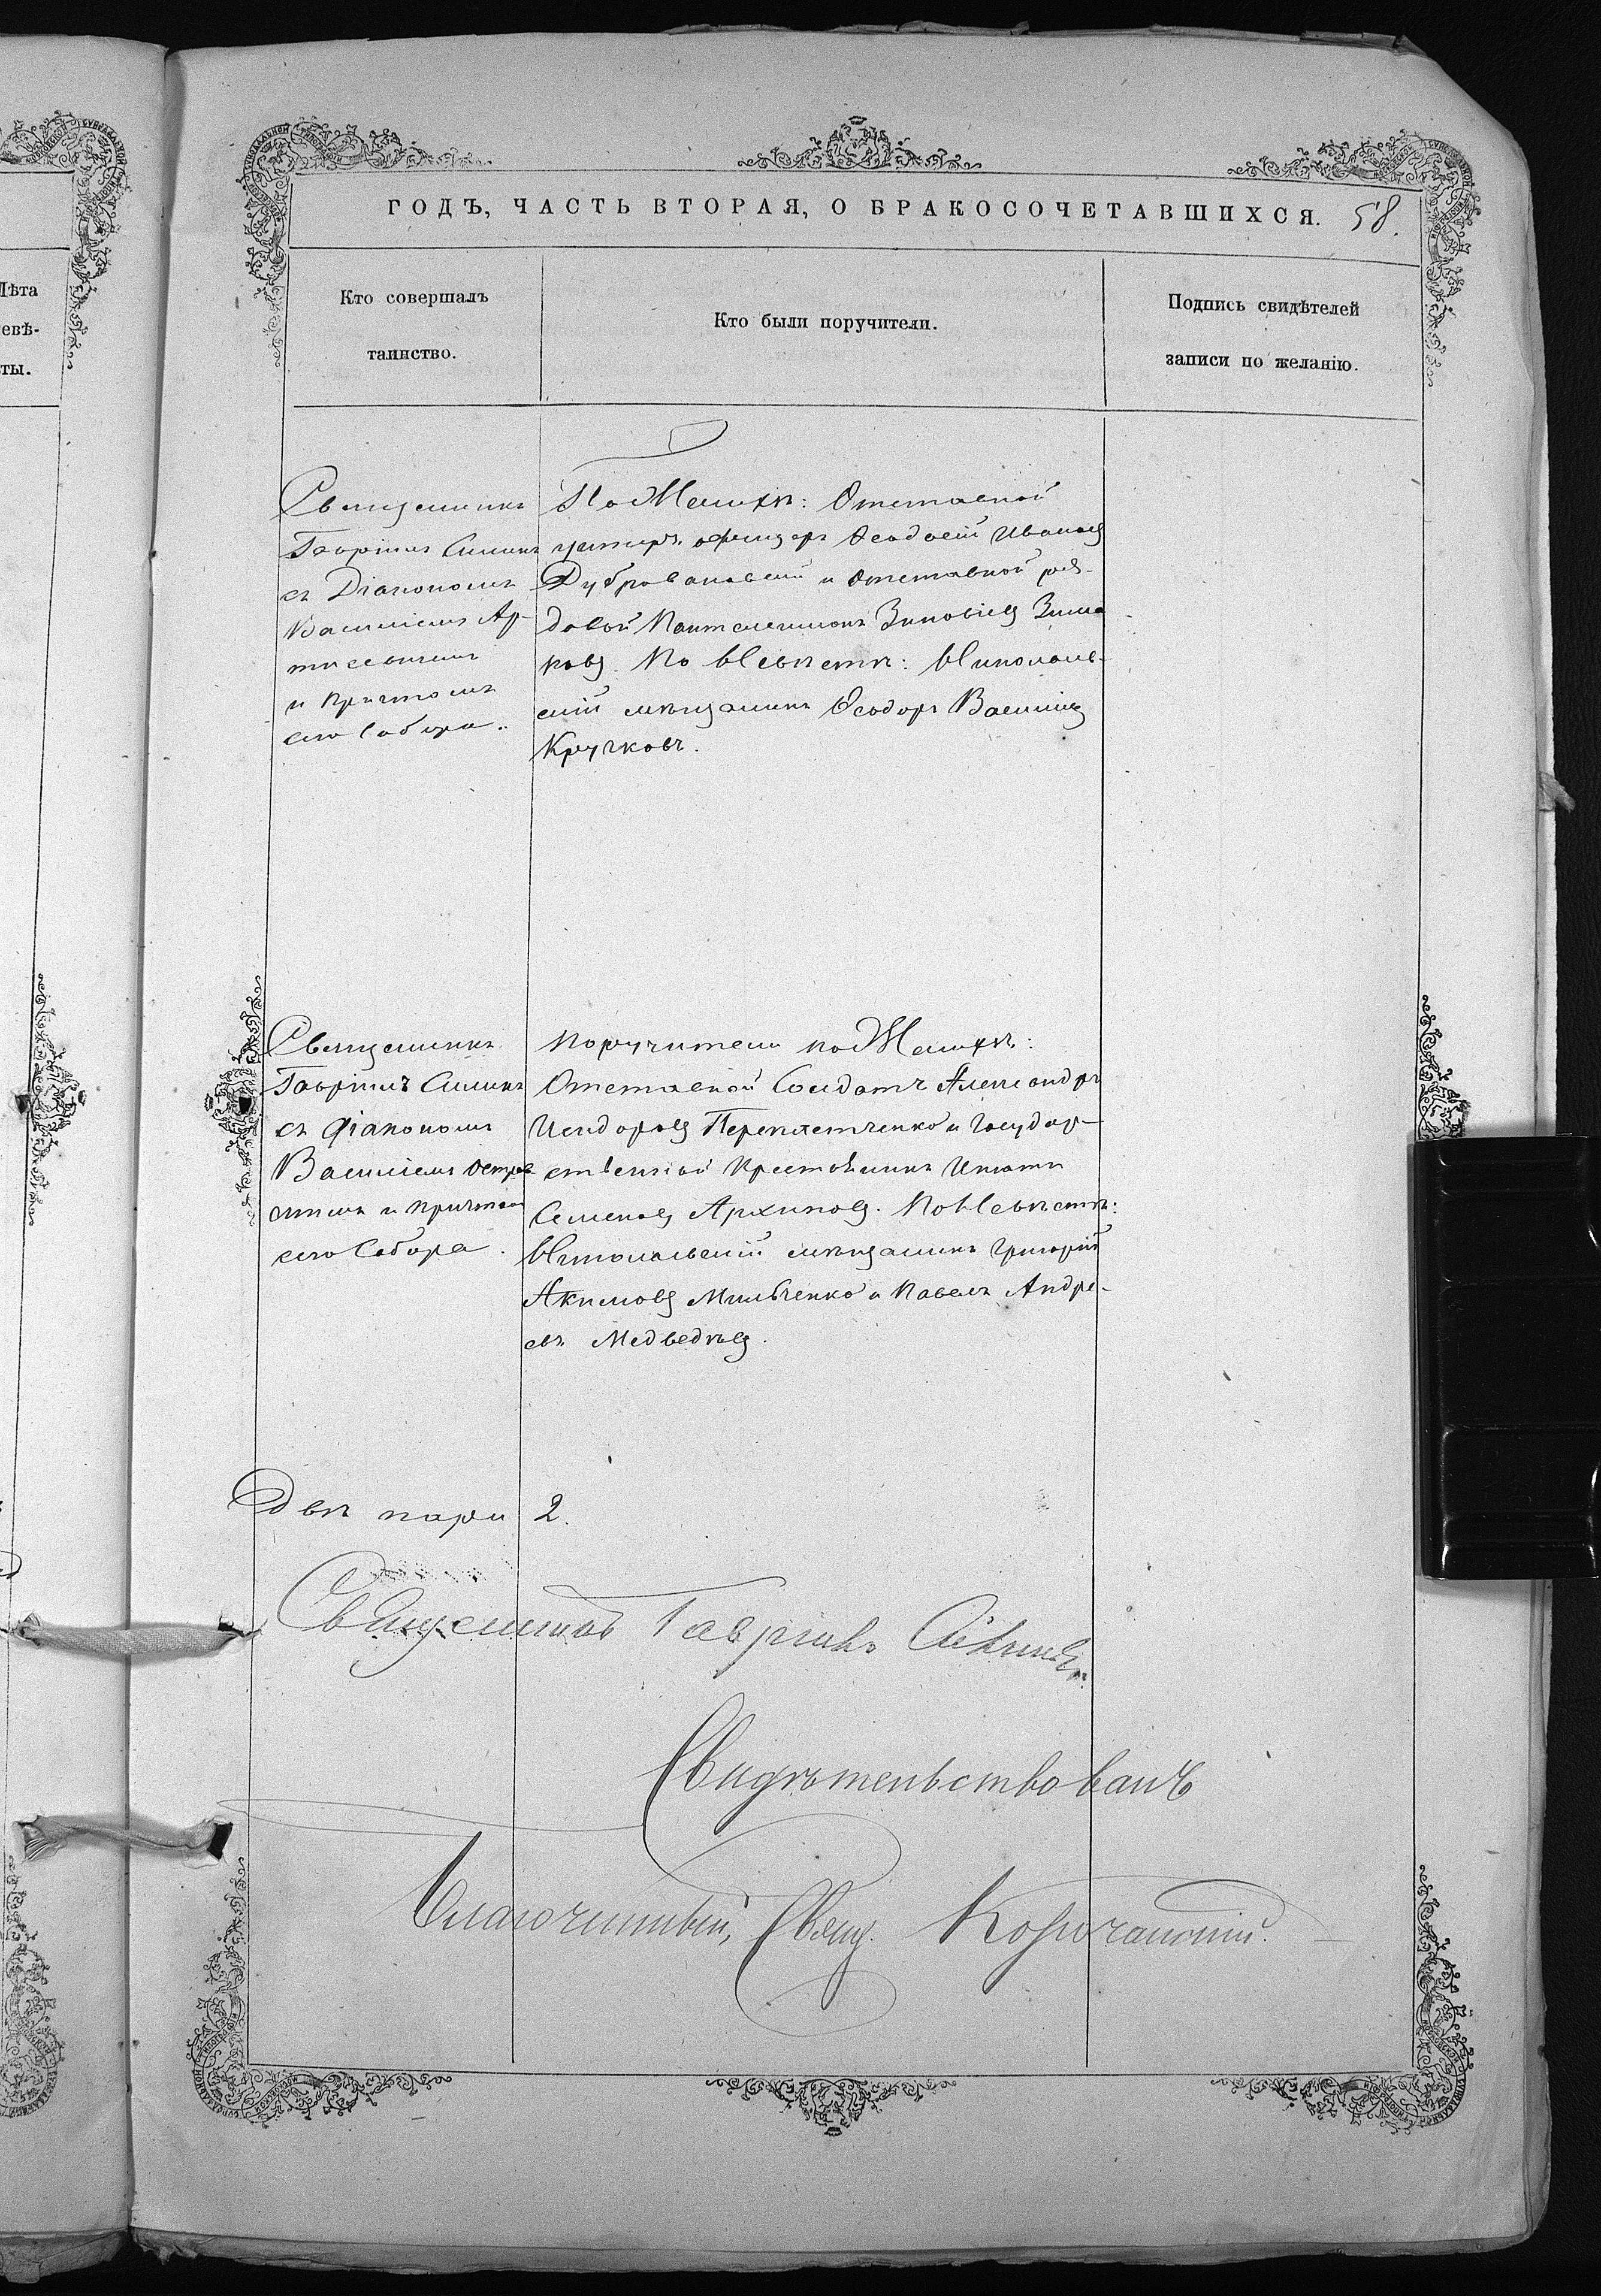 Лѣта
невѣ-
сты.
ГОДЪ, ЧАСТЬ ВТОРАЯ, О БРАКОСОЧЕТАВШИХСЯ. 58.
Кто совершалъ
таинство.
Кто были поручители.
Подпись свидѣтелей
записи по желанію.
Священникъ
Гавріилъ
съ Діакономъ
Василіемъ Ар-
и причтомъ
сего Собора.
По Женихѣ: Отставной
унтеръ офицеръ Ѳеодосій Ивановъ
и отставной ря-
довой Пантелеимонъ Зиновіевъ Зима
ковъ. По Невѣстѣ: Никополь-
скій мѣщанинъ Ѳеодоръ Василіевъ
Кручковъ.
Священникъ
Гавріилъ
съ Діакономъ
Василіемъ
и причтомъ
сего Собора.
Поручители по Женихѣ:
Отставной Солдатъ Александръ
Исидоровъ Переплетченко и Государ-
ственной крестьянинъ Игнатъ
Семеновъ Архиповъ. По Невѣстѣ:
Никопольскій мѣщанинъ Григорій
Акимовъ Мильченко и Павелъ Андре-
евъ Медведѣвъ.
Двѣ пары 2.
Священникъ Гавріилъ
Свидѣтельствовалъ
Благочинный, Свящ.